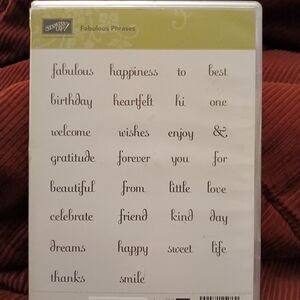 STAMPIN' UP! Fabulous Phrases
fabulous happiness to best
birthday heartfelt hi one
welcome wishes enjoy &
gratitude forever you for
beautiful from little love
celebrate friend kind day
dreams happy sweet life
thanks smile